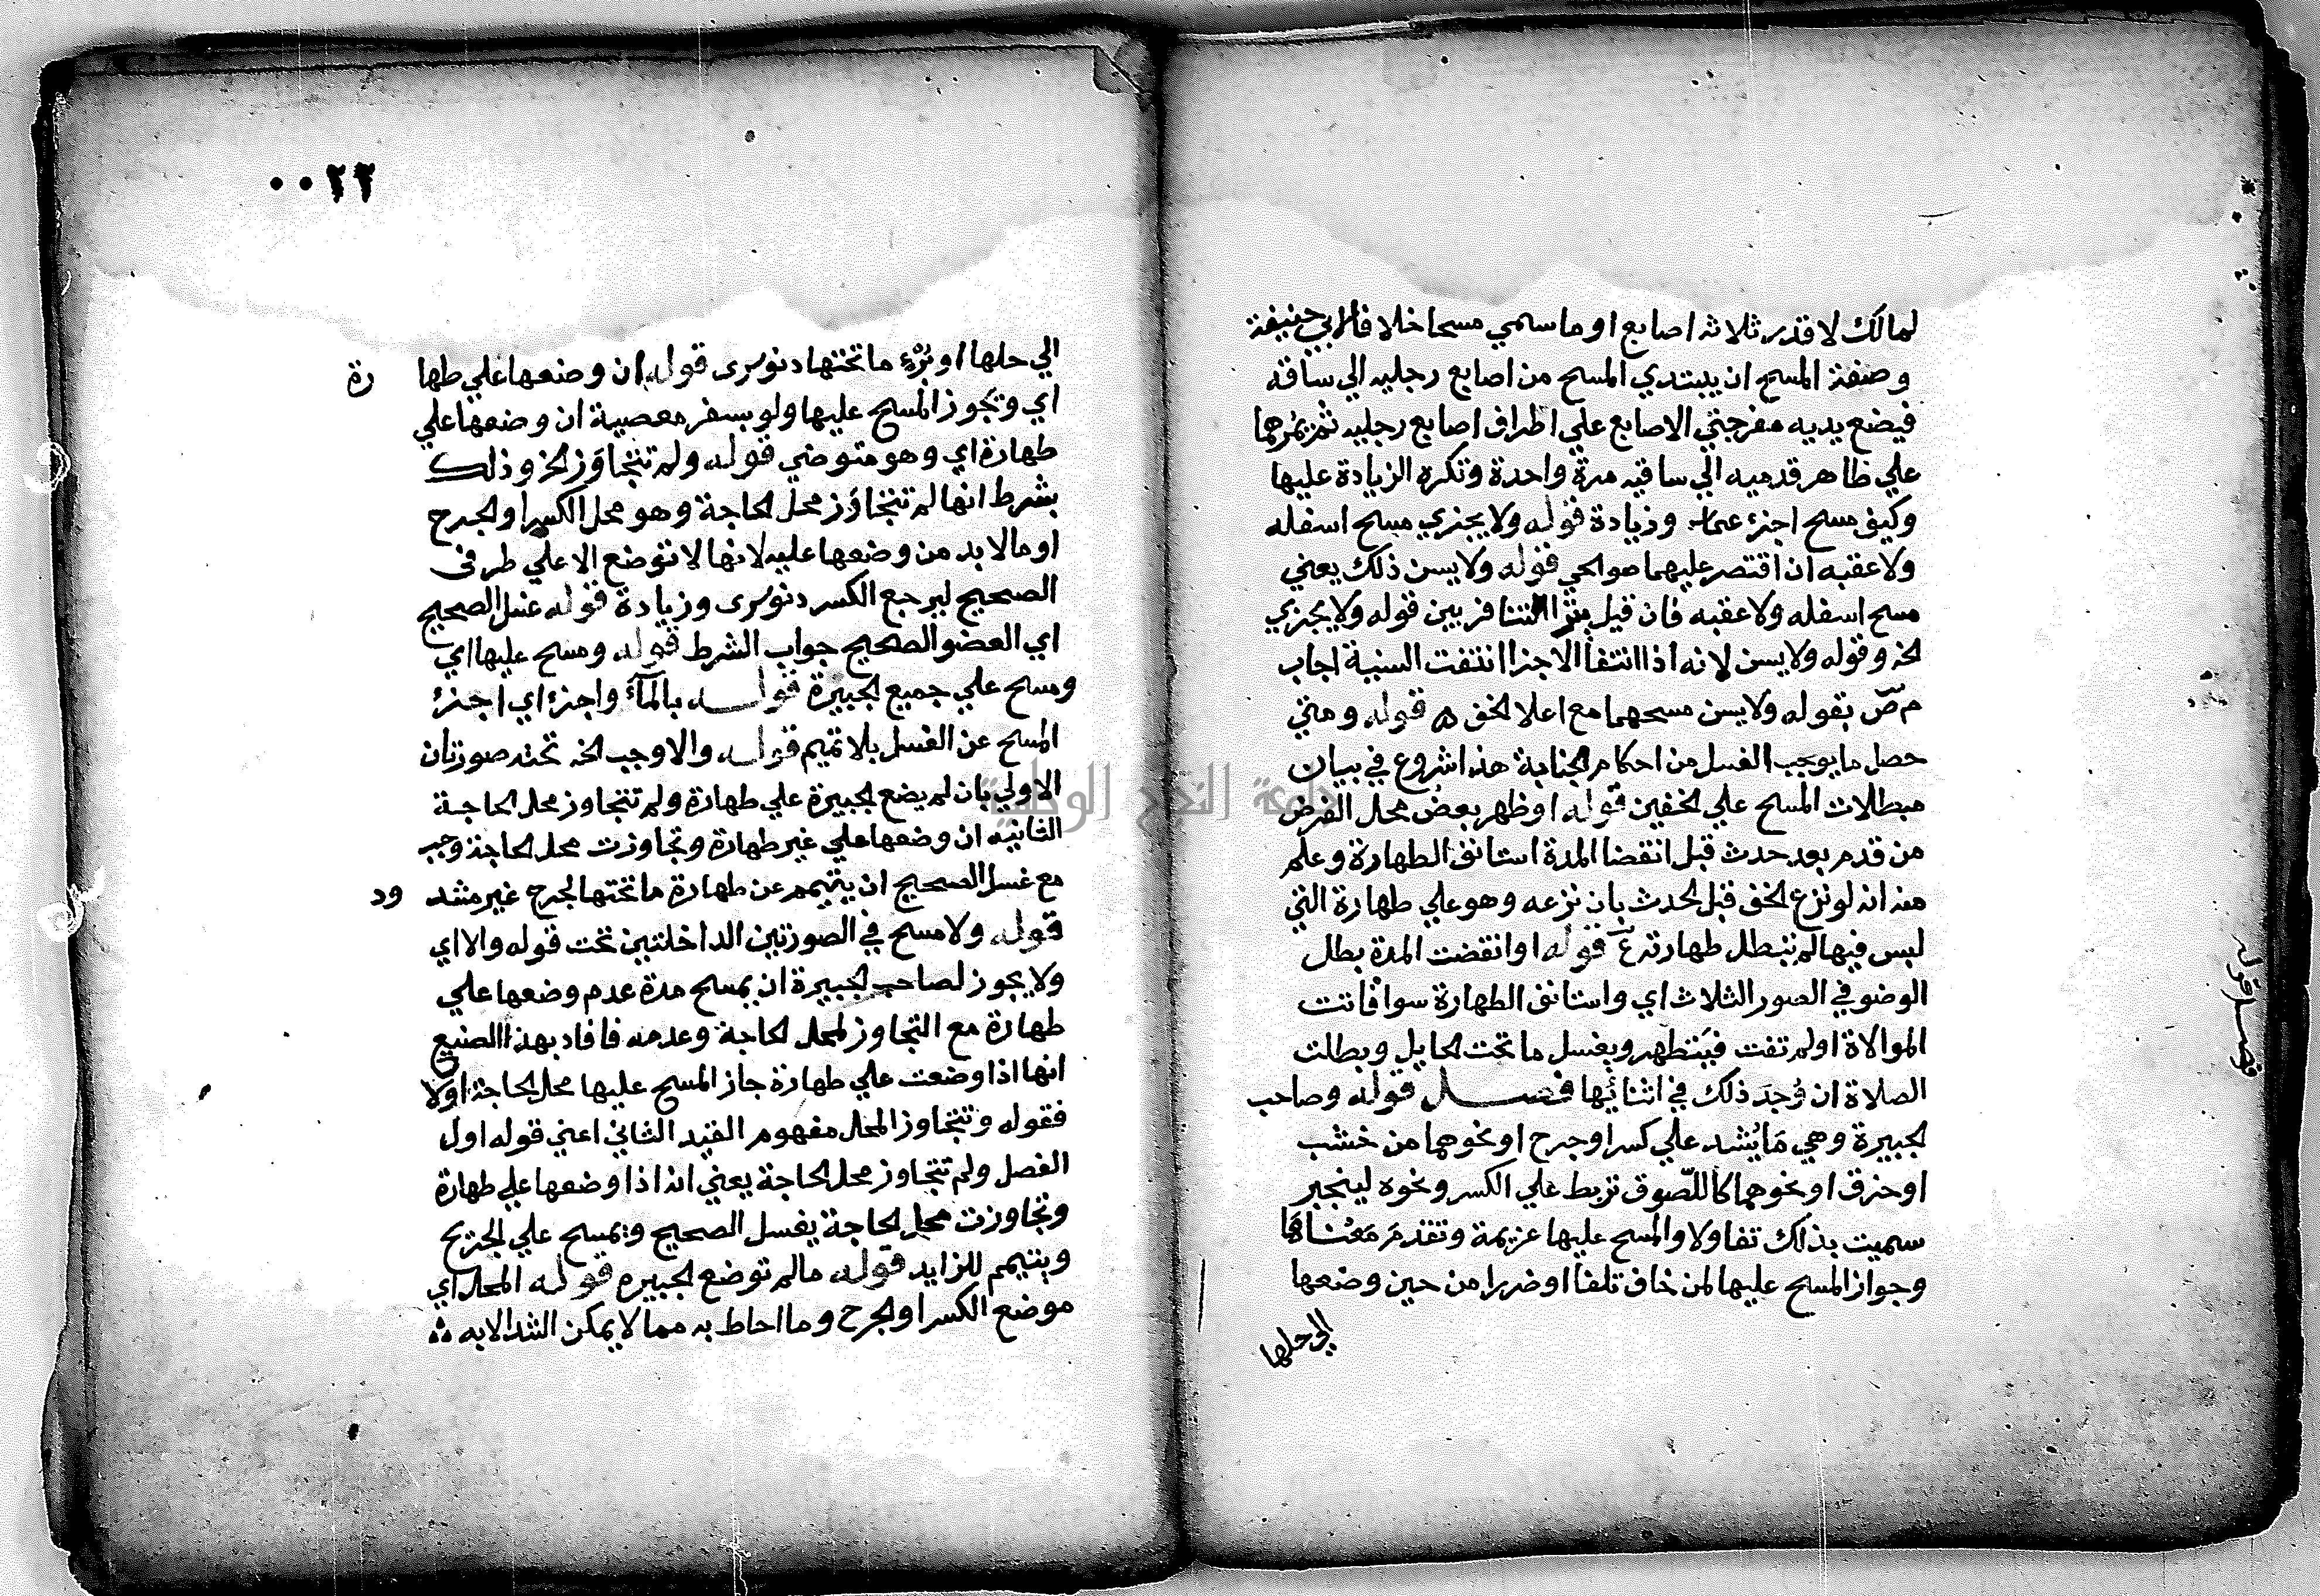 لمالك لا قدر ثلاثة اصابع او ما سمي مسحا خلافا لابي حنيفة
وصفة المسح ان يبتدي المسح من اصابع رجليه الي ساقه
فيضع يديه مفرجتي الاصابع علي اطراف اصابع رجليه ثم يمرهما
علي ظاهر قدميه الي ساقيه مرة واحدة وتكره الزيادة عليها
وكيف مسح اجزء وزيادة قوله ولا يجزي مسح اسفله
ولا عقبه ان اقتصر عليهما قوله ولا يسن ذلك يعني
مسح اسفله ولا عقبه فان قيل التنافر بين قوله ولا يجزي
الخ وقوله ولا يسن لانه اذا انتفا الاجزا انتفت السنية اجاب
م ص بقوله ولا يسن مسحهما مع اعلا الخف ه قوله ومتي
حصل ما يوجب الغسل من احكام الجنابة هذا شروع في بيان
مبطلات المسح علي الخفين قوله او ظهر بعض محل الفرض
من قدم بعد حدث قبل انقضا المدة استانف الطهارة وعلم
منه انه لو نزع الخف قبل الحدث بان نزعه وهو علي طهارة التي
لبس فيها لم تبطل طهارته ع قوله او انقضت المدة بطل
الوضو في الصور الثلاث اي واستانف الطهارة سوا فاتت
الموالاة او لم تفت فيتطهر ويغسل ما تحت الحايل وبطلت
الصلاة ان وُجدَ ذلك في اثنائها فصل قوله وصاحب
الجبيرة وهي مَا يُشد علي كسر او جرح او نحوهما من خشب
او خرق او نحوهما كاللّصوق تربط علي الكسر ونحوه لينجبر
سميت بذلك تفاولا والمسح عليها عزيمة وتقدم مَعْناهَا
وجواز المسح عليها لمن خاف تلفا او ضررا من حين وضعها
الي حلها
فصل قوله
٠٠٢٢
الي حلها او بُرْءِ ما تحتها دنوسرى قوله ان وضعها علي طها رة
اي وتجوز المسح عليها ولو بسفر معصية ان وضعها علي
طهارة اي وهو متوضي قوله ولم تتجاوَز الخ وذلك
بشرط انها لم تتجاوَز محل الحاجة وهو محل الكسر او الجرح
او ما لا بد من وضعها عليه لانها لا توضع الا علي طرفى
الصحيح ليرجع الكسر دنوسرى وزيادة قوله غسل الصحيح
اي العضو الصحيح جواب الشرط قوله ومسح عليها اي
ومسح علي جميع الجبيرة قوله بالمآء واجزء اي اجزء
المسح عن الغسل بلا تميم قوله والا وجب الخ تحته صورتان
الاولي بان لم يضع الجبيرة علي طهارة ولم تتجاوز محل الحاجة
الثانيه ان وضعها علي غير طهارة وتجاوزت محل الحاجة وجب
مع غسل الصحيح ان يتيمم عن طهارة ما تحتها لجرح غير مشد ود
قوله ولا مسح في الصورتين الداخلتين تحت قوله والا اي
ولا يجوز لصاحب الجبيرة ان يمسح مدة عدم وضعها علي
طهارة مع التجاوز لمحل الحاجة وعدمه فافاد بهذا الصنيع
انها اذا وضعت علي طهارة جاز المسح عليها محل الحاجة اولا
فقوله وتتجاوز المحل مفهوم القيد الثاني اعني قوله اول
الفصل ولم تتجاوز محل الحاجة يعني انه اذا وضعها علي طهارة
وتجاوزت محل الحاجة يغسل الصحيح ويمسح علي الجريح
ويتيمم للزايد قوله ما لم توضع الجبيره قوله المحل اي
موضع الكسر او الجرح وما احاط به مما لا يمكن الشد الا به